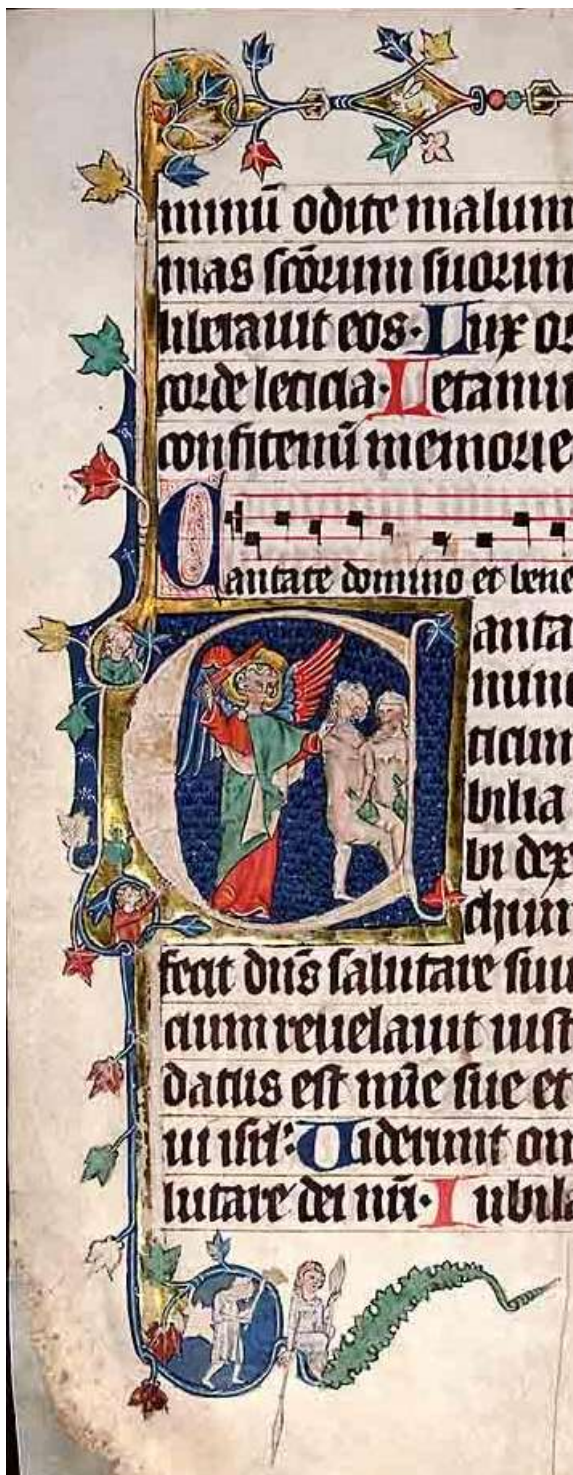 minū odite malum
mas scōrum suorum
liberauit eos. Lux or
corde leticia. Letamin
confitemī memorie
Cantate domino et bene
Canta
mino
ticum
bilia
bi dex
chium
fecit dn̄s salutare suu
cium reuelauit iust
datus est mīe sue et
ui isrl: Viderunt om
lutare dei nr̄i. Iubila